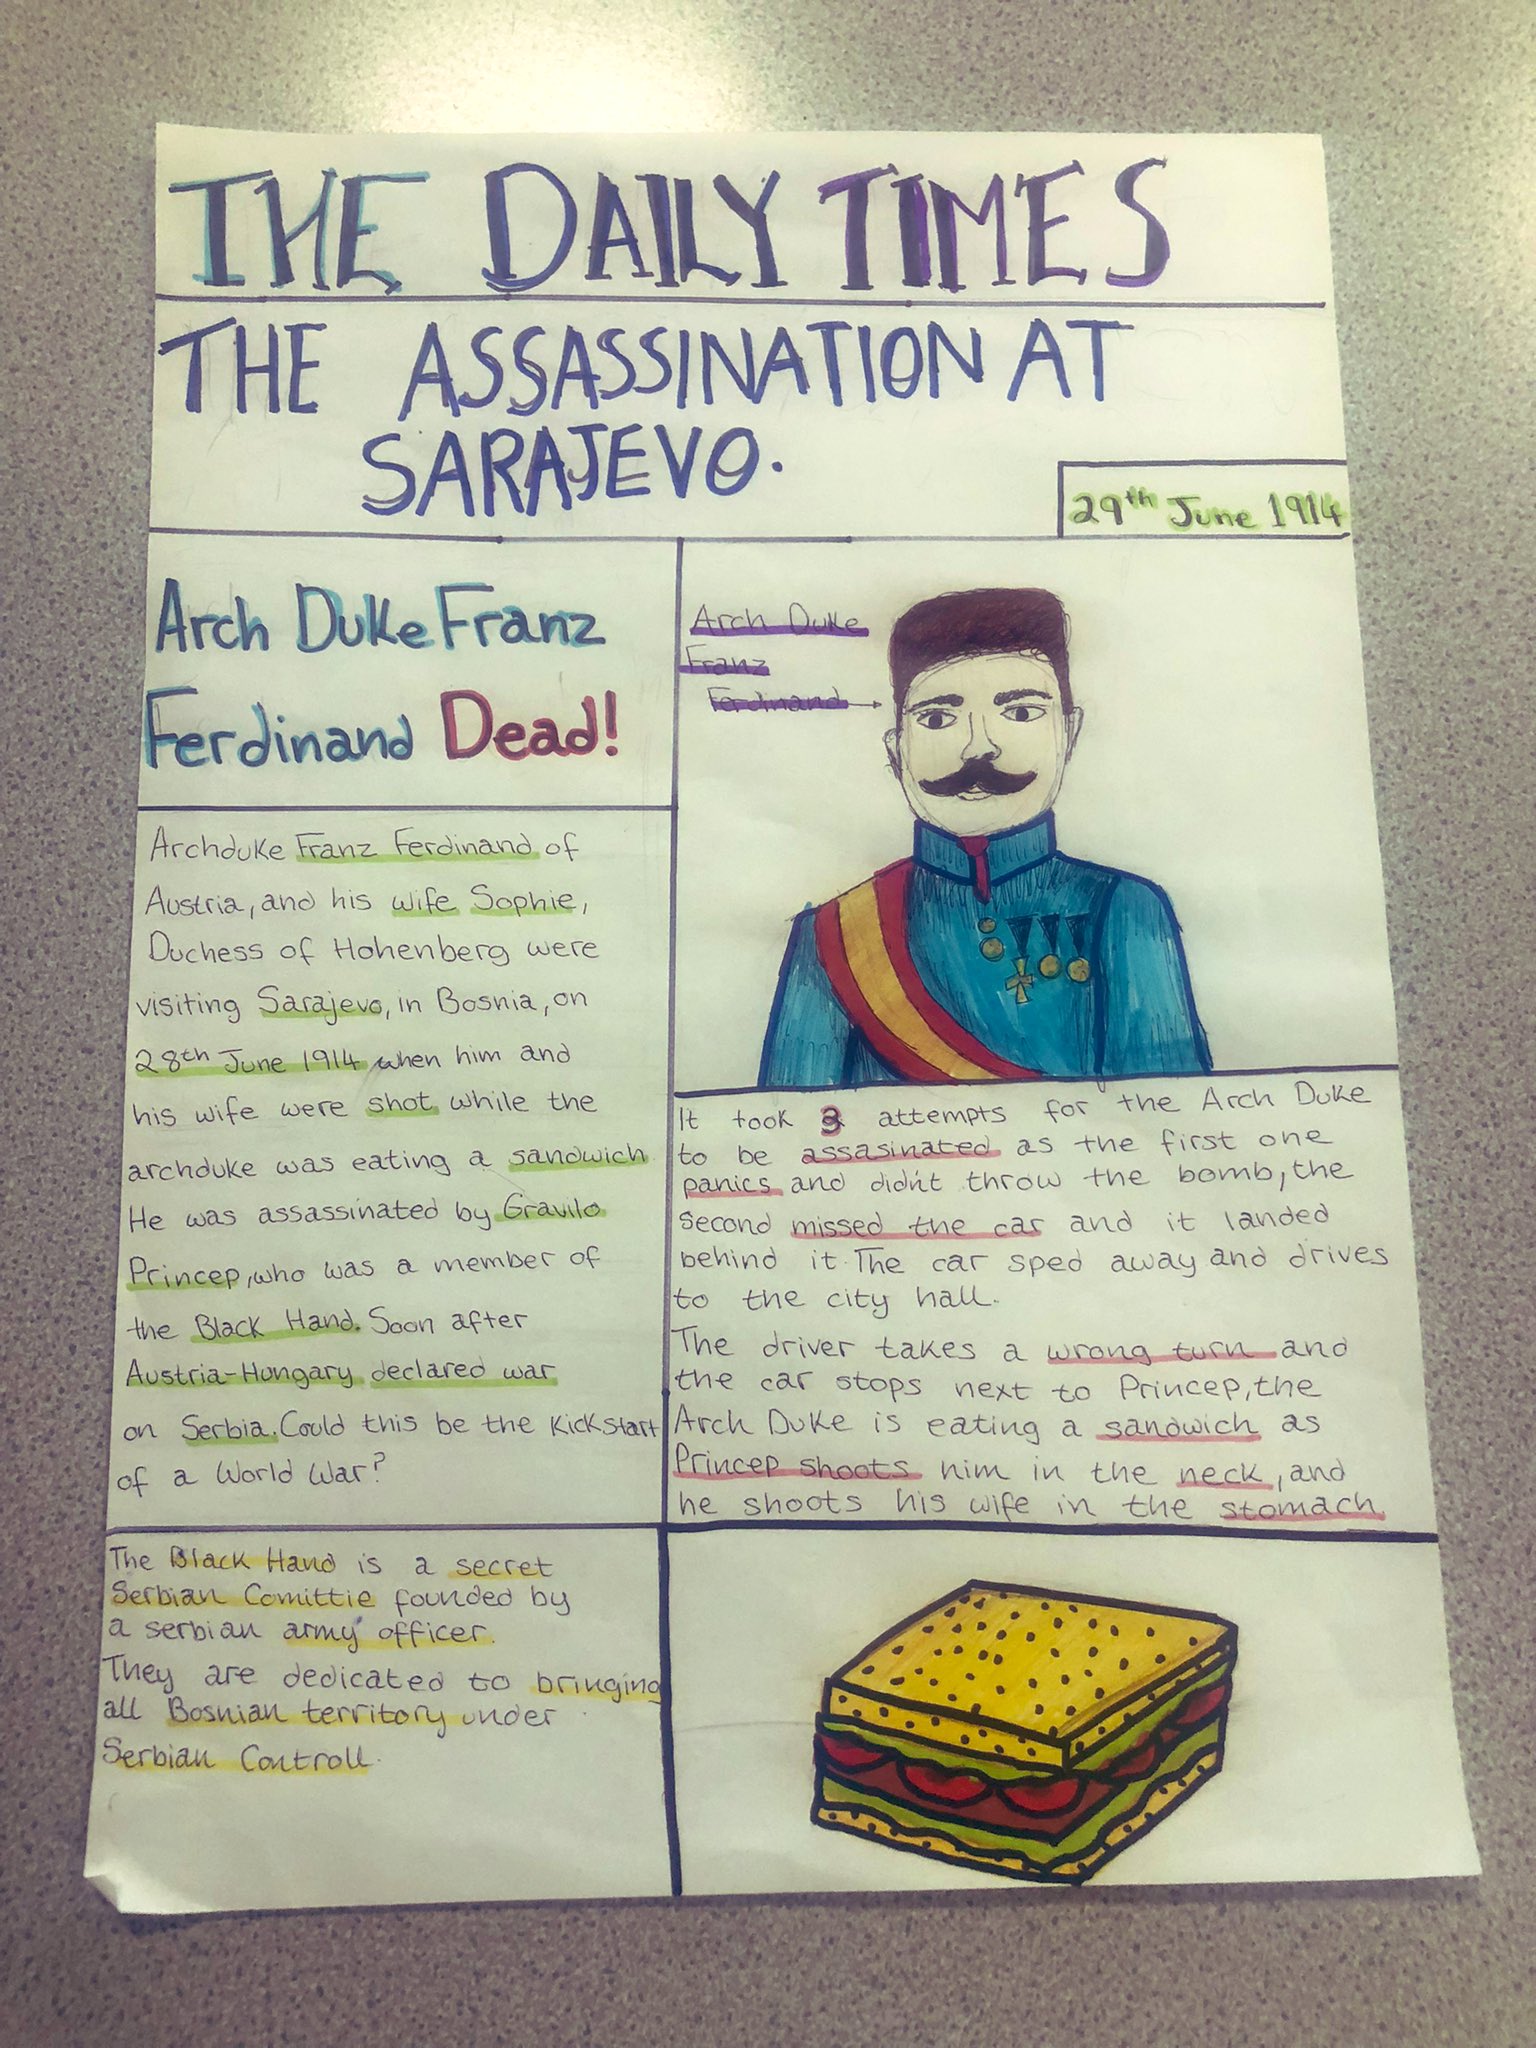 THE DAILY TIMES
THE ASSASSINATION AT
SARAJEVO.
29th June 1914
Arch Duke Franz
Ferdinand Dead!
Arch Duke
Franz
Ferdinand
Archduke Franz Ferdinand of
Austria, and his wife Sophie,
Duchess of Hohenberg were
visiting Sarajevo, in Bosnia, on
28th June 1914, when him and
his wife were shot while the
archduke was eating a sandwich.
He was assassinated by Gravilo
Princep, who was a member of
the Black Hand. Soon after
Austria-Hungary declared war
on Serbia. Could this be the Kickstart
of a World War?
It took 3 attempts for the Arch Duke
to be assasinated as the first one
panics and didn't throw the bomb, the
second missed the car and it landed
behind it. The car sped away and drives
to the city hall.
The driver takes a wrong turn and
the car stops next to Princep, the
Arch Duke is eating a sandwich as
Princep shoots him in the neck, and
he shoots his wife in the stomach
The Black Hand is a secret
Serbian Comittie founded by
a serbian army officer.
They are dedicated to bringing
all Bosnian territory under
Serbian Controll.